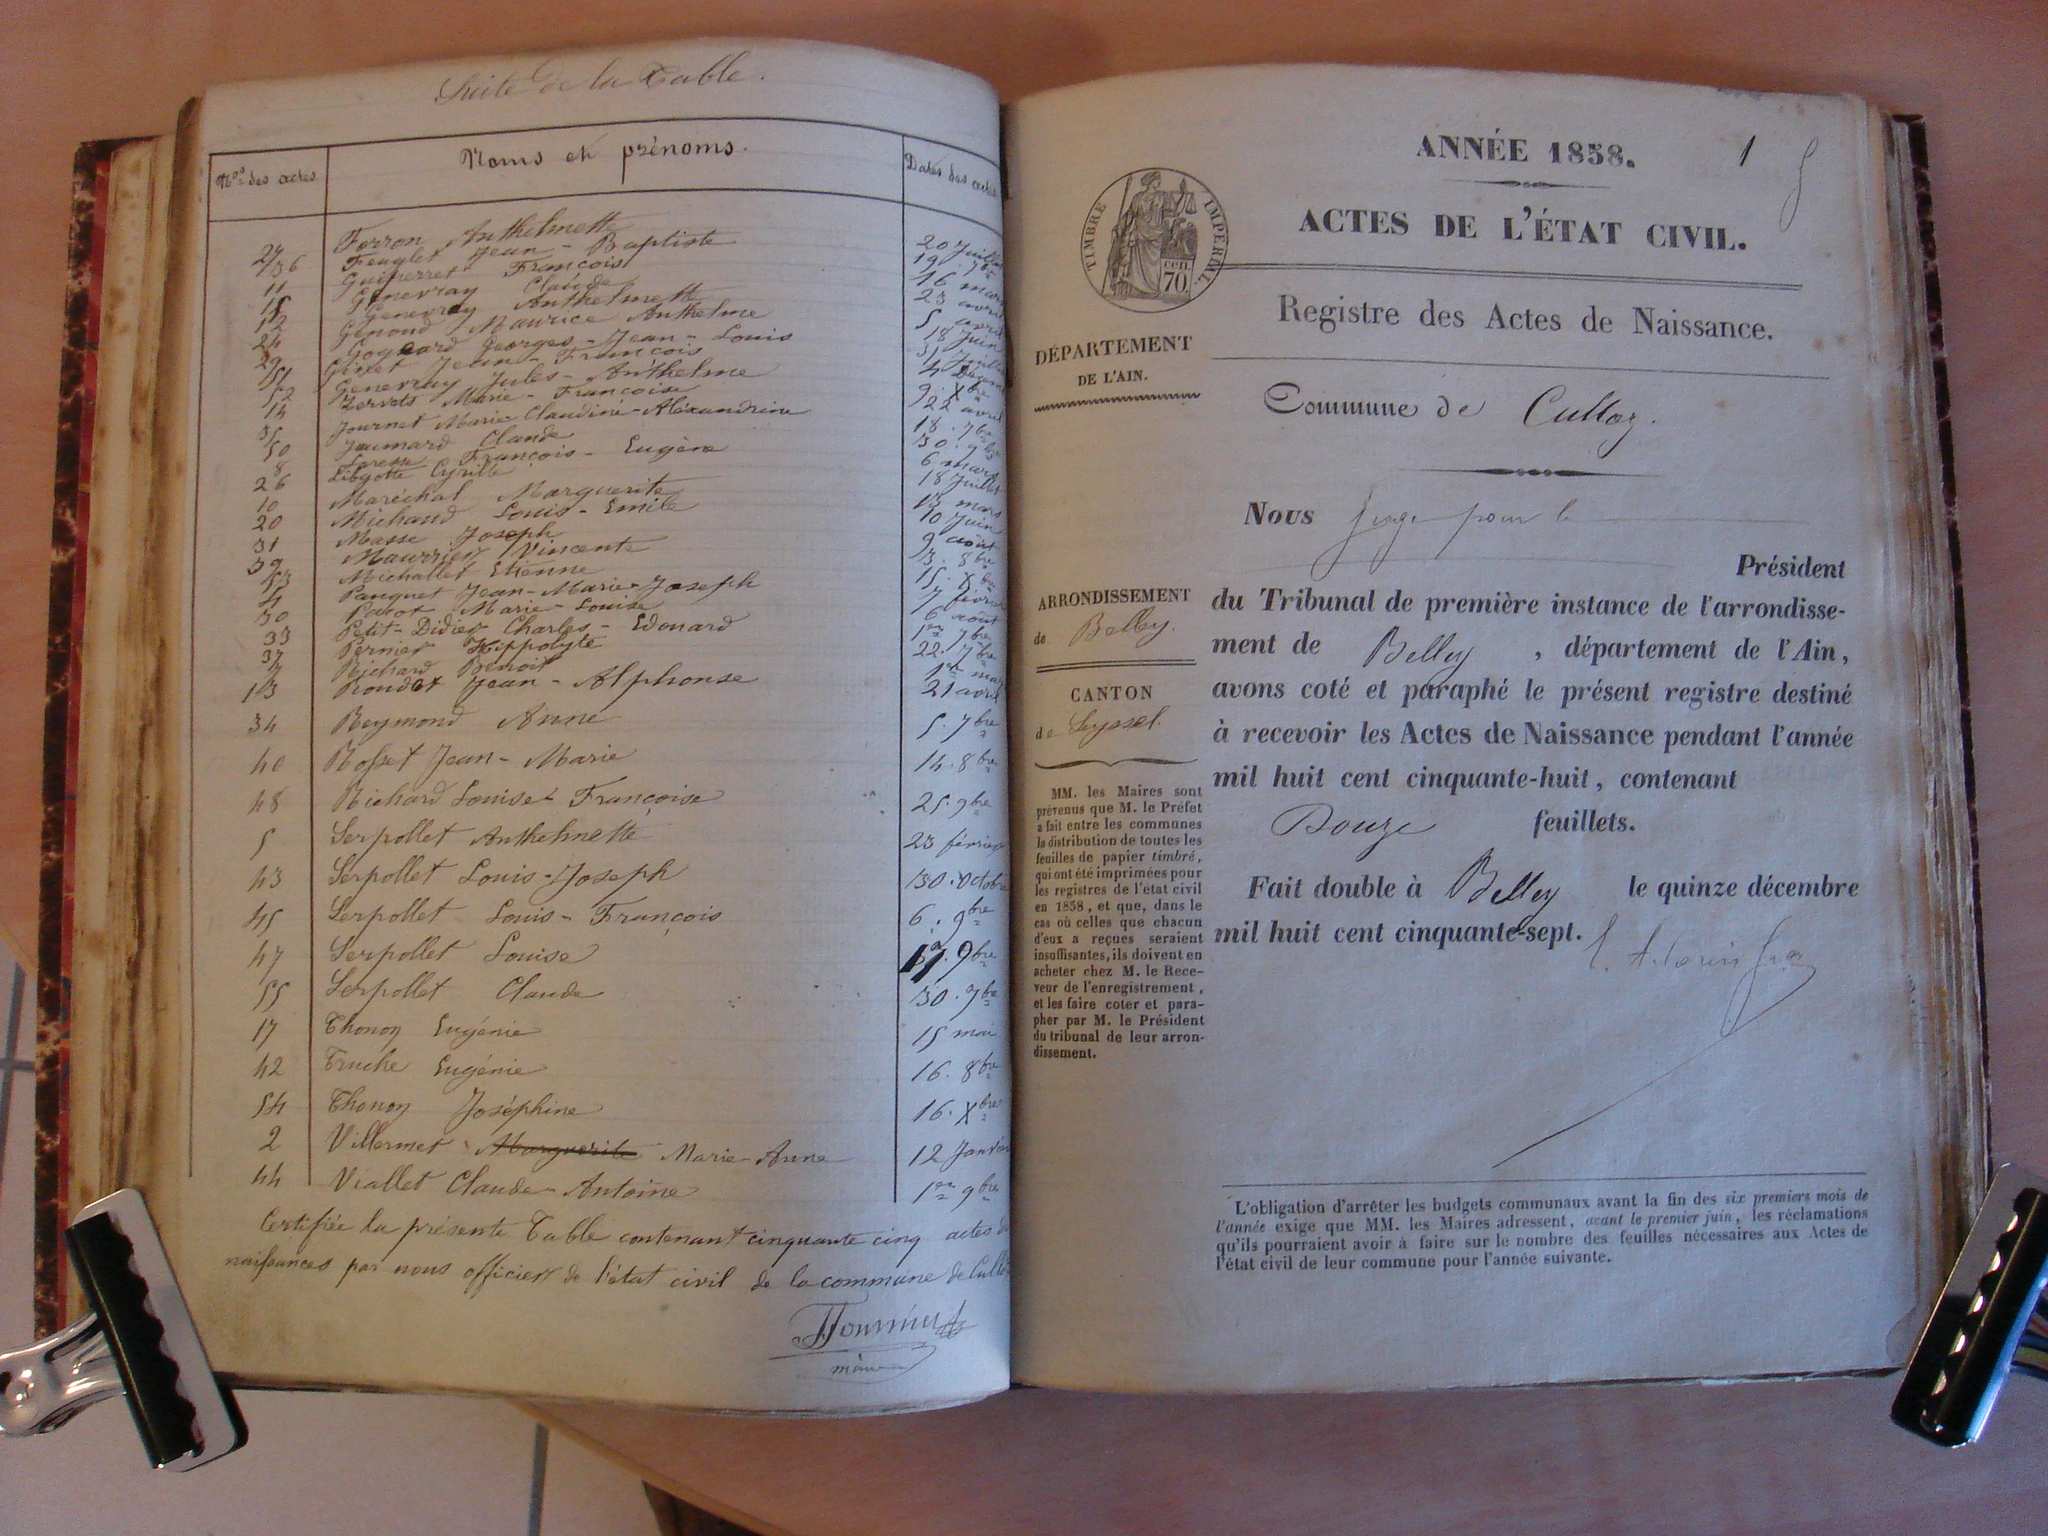 Suite de la Table.
Nos des actes
Noms et prénoms.
Dates des actes
27 Ferron Anthelmette 20 Juillet
36 Feuglet Jean-Baptiste 19. 7bre
11 François 16 mars
15 Genevray Claude 23 avril
12 Genevray Anthelmette 5 avril
24 Génond Maurice Anthelme 18 Juin
29 Goynard Georges-Jean-Louis 31 Juillet
51 Girret Jean-François 4
52 Genevray Jules-Anthelme 9. Xbre
14 Zervets Marie-Françoise 22 avril
35 Journet Marie Claudine-Aléxandrine 18. 7bre
50 Jaumard Claude 30. 9bre
8 François-Eugène 6 mars
26 Libgotte Cyrille 18 Juillet
10 Maréchal Marguerite 13 mars
20 Michaud Louis-Emile 10 Juin
31 Masse Joseph 9 août
39 Maurrier Vincente 13. 8bre
53 Michallet Etienne 15. Xbre
4 Panquet Jean-Marie-Joseph 7 février
30 Parot Marie-Louise 6 août
33 Petit-Didier Charles-Edouard 1er 7bre
37 Pernier Hippolyte 22. 7bre
7 Richard Benoit 1er mars
13 Rondet Jean-Alphonse 21 avril
34 Reymond Anne 5. 7bre
40 Rosset Jean-Marie 14. 8bre
48 Richard Louise Françoise 25. 9bre
5 Serpollet Anthelmette 23 février
43 Serpollet Louis-Joseph 30. Octobre
45 Serpollet Louis-François 6. 9bre
47 Serpollet Louise 19. 9bre
55 Serpollet Claude 30. 7bre
17 Thonoy Eugénie 15 mai
42 Truche Eugénie 16. 8bre
54 Thonoy Joséphine 16. Xbre
2 Villermet Marguerite Marie-Anne 12 Janvier
44 Viallet Claude-Antoine 1er 9bre
Certifiée la présente Table contenant cinquante cinq actes de
naissances par nous officier de l'état civil de la commune de Culloz
Fournier
maire
ANNÉE 1858. 1
TIMBRE IMPERIAL
cen. 70.
ACTES DE L'ÉTAT CIVIL.
Registre des Actes de Naissance.
DÉPARTEMENT
DE L'AIN.
Commune de Culloz.
Nous Juge pour le
Président
du Tribunal de première instance de l'arrondisse-
ment de Belley, département de l'Ain,
avons coté et paraphé le présent registre destiné
à recevoir les Actes de Naissance pendant l'année
mil huit cent cinquante-huit, contenant
Douze feuillets.
Fait double à Belley le quinze décembre
mil huit cent cinquante-sept.
ARRONDISSEMENT
de Belley.
CANTON
de Seyssel.
MM. les Maires sont
prévenus que M. le Préfet
a fait entre les communes
la distribution de toutes les
feuilles de papier timbré,
qui ont été imprimées pour
les registres de l'état civil
en 1858, et que, dans le
cas où celles que chacun
d'eux a reçues seraient
insuffisantes, ils doivent en
acheter chez M. le Rece-
veur de l'enregistrement,
et les faire coter et para-
pher par M. le Président
du tribunal de leur arron-
dissement.
L'obligation d'arrêter les budgets communaux avant la fin des six premiers mois de
l'année exige que MM. les Maires adressent, avant le premier juin, les réclamations
qu'ils pourraient avoir à faire sur le nombre des feuilles nécessaires aux Actes de
l'état civil de leur commune pour l'année suivante.